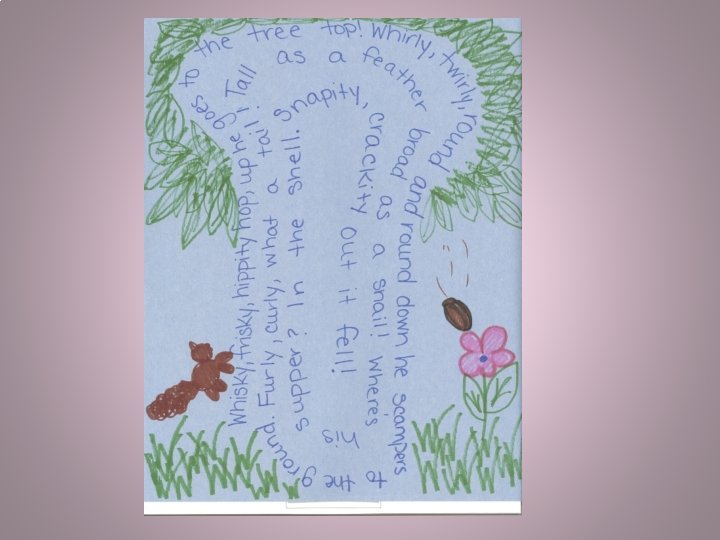 Whisky, frisky, hippity hop, up he goes to the tree top!
Whirly, twirly, round and round down he scampers to the ground.
Furly, curly, what a tail!
Tall as a feather broad as a snail!
Where's his supper? In the shell.
Snapity, crackity out it fell!